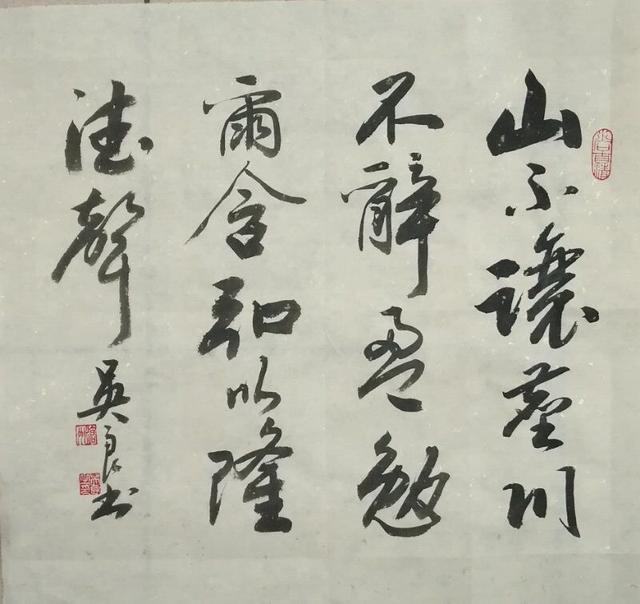 山不讓塵川
不辭盈勉
爾含弘以隆
德聲
吳良书